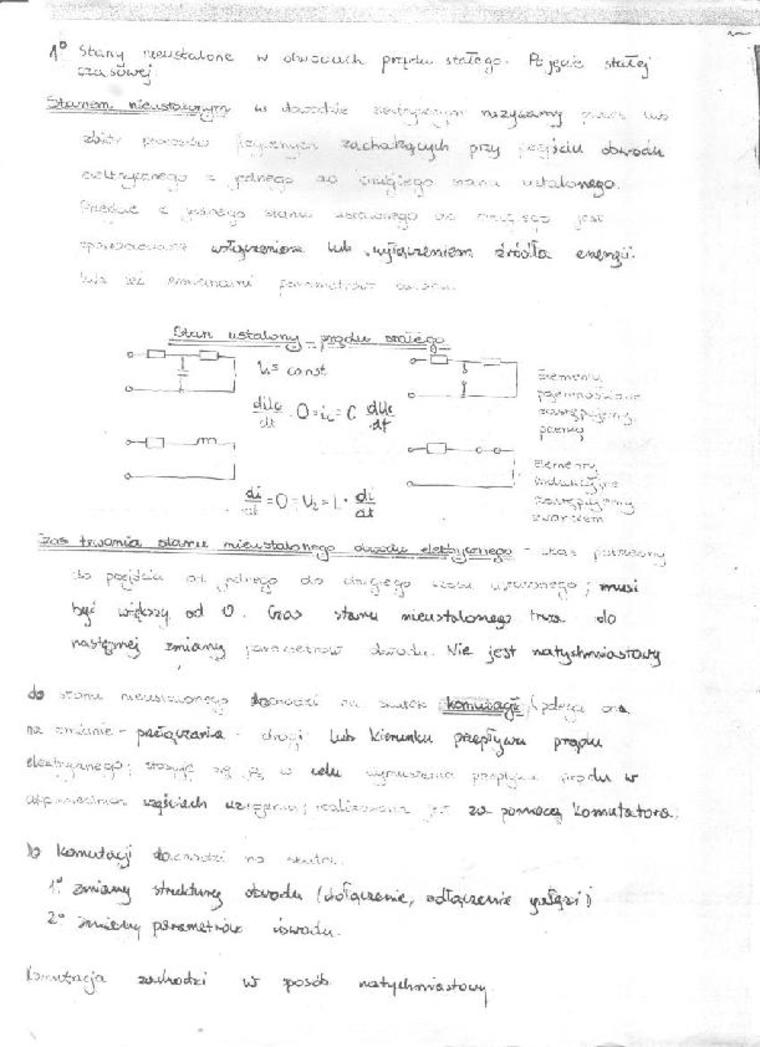 1° Stany nieustalone w obwodach prądu stałego. Pojęcie stałej
czasowej.
Stanem nieustalonym w obwodzie elektrycznym nazywamy proces lub
zbiór procesów fizycznych zachodzących przy przejściu obwodu
elektrycznego z jednego do drugiego stanu ustalonego.
Przejście z jednego stanu ustalonego do drugiego jest
spowodowane włączeniem lub wyłączeniem źródła energii
lub też zmianami parametrów obwodu.
Stan ustalony prądu stałego
U = const
duc/dt = 0 = ic = C duc/dt
Elementy
pojemnościowe
zastępujemy
przerwą
di/dt = 0 = UL = L · di/dt
elementy
indukcyjne
zastępujemy
zwarciem
Czas trwania stanu nieustalonego obwodu elektrycznego - czas potrzebny
do przejścia od jednego do drugiego stanu ustalonego; musi
być większy od 0. Czas stanu nieustalonego trwa do
następnej zmiany parametrów obwodu. Nie jest natychmiastowy
do stanu nieustalonego dochodzi na skutek komutacji (polega ona
na zmianie - przełączania - drogi lub kierunku przepływu prądu
elektrycznego; stosuje się ją w celu wymuszenia przepływu prądu w
odpowiednich częściach urządzenia; realizowana jest za pomocą komutatora.
Do komutacji dochodzi na skutek:
1° zmiany struktury obwodu (dołączenie, odłączenie gałęzi)
2° zmiany parametrów obwodu.
Komutacja zachodzi w sposób natychmiastowy